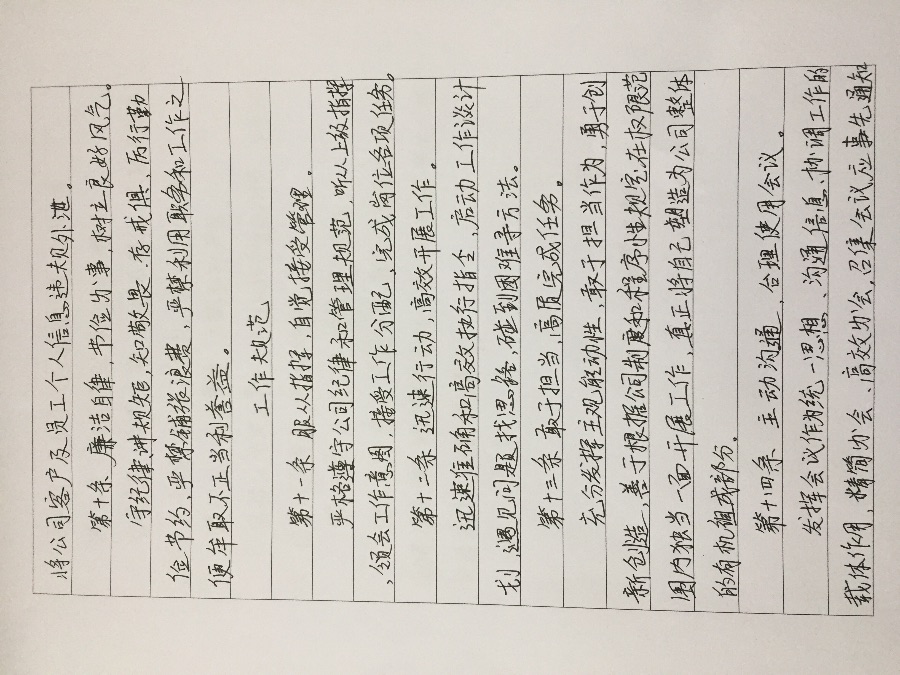 将公司客户及员工个人信息违规外泄。
第十条 廉洁自律,节俭办事 树立良好风气。
守经律讲规矩,知敬畏、存戒惧、厉行勤
俭节约,严禁铺张浪费,严禁利用职务和工作之
便牟取不正当利益。
工作规范
第十一条 服从指挥,自觉接受管理。
严格遵守公司纪律和管理规范,听从上级指挥
,领会工作意图,接受工作分配,完成岗位各项任务。
第十二条 迅速行动,高效开展工作。
迅速准确和高效执行指令,启动工作谈计
划,遇见问题找思路,碰到困难寻方法。
第十三条 敢于担当,高质完成任务。
充分发挥主观能动性,敢于担当作为,勇于创
新创造,善于根据公司制度和程序性规定在权限范
围内独当一面开展工作,真正将自己塑造为公司整体
的有机组成部分。
第十四条 主动沟通,合理使用会议。
发挥会议作为统一思想、沟通信息、协调工作的
载体作用,精简办会、高效办会,召集会议应事先通知